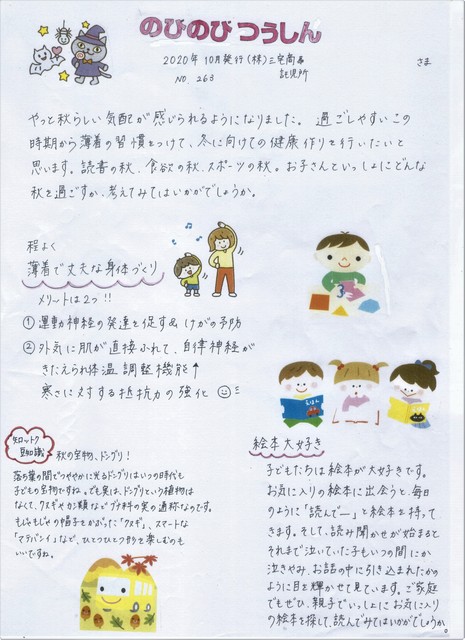 のびのび つうしん
2020年 10月 発行 (株)三宅商事
託児所
NO. 263
さま
やっと秋らしい気配が感じられるようになりました。過ごしやすいこの
時期から薄着の習慣をつけて、冬に向けての健康作りを行いたいと
思います。読書の秋、食欲の秋、スポーツの秋。お子さんといっしょにどんな
秋を過ごすか、考えてみてはいかがでしょうか。
程よく
薄着で丈夫な身体づくり
メリットは2つ!!
①運動神経の発達を促す& けがの予防
②外気に肌が直接ふれて、自律神経が
きたえられ体温調整機能↑
寒さに対する抵抗力の強化
知っトク
豆知識
秋の宝物、ドングリ!
落ち葉の間でつややかに光るドングリはいつの時代も
子どもの宝物ですね。でも実は、ドングリという植物は
なくて、クヌギやカシ類などブナ科の実の通称なのです。
もじゃもじゃの帽子をかぶった「クヌギ」、スマートな
「マテバシイ」など、ひとつひとつちがうを楽しむのも
いいですね。
絵本大好き
子どもたちは絵本が大好きです。
お気に入りの絵本に出会うと、毎日
のように「読んでー」と絵本を持って
きます。そして、読み聞かせが始まると
それまで泣いていた子もいつの間にか
泣きやみ、お話の中に引き込まれたかの
ように目を輝かせて見ています。ご家庭
でもぜひ、親子でいっしょにお気に入り
の絵本を探して、読んでみてはいかがでしょうか。